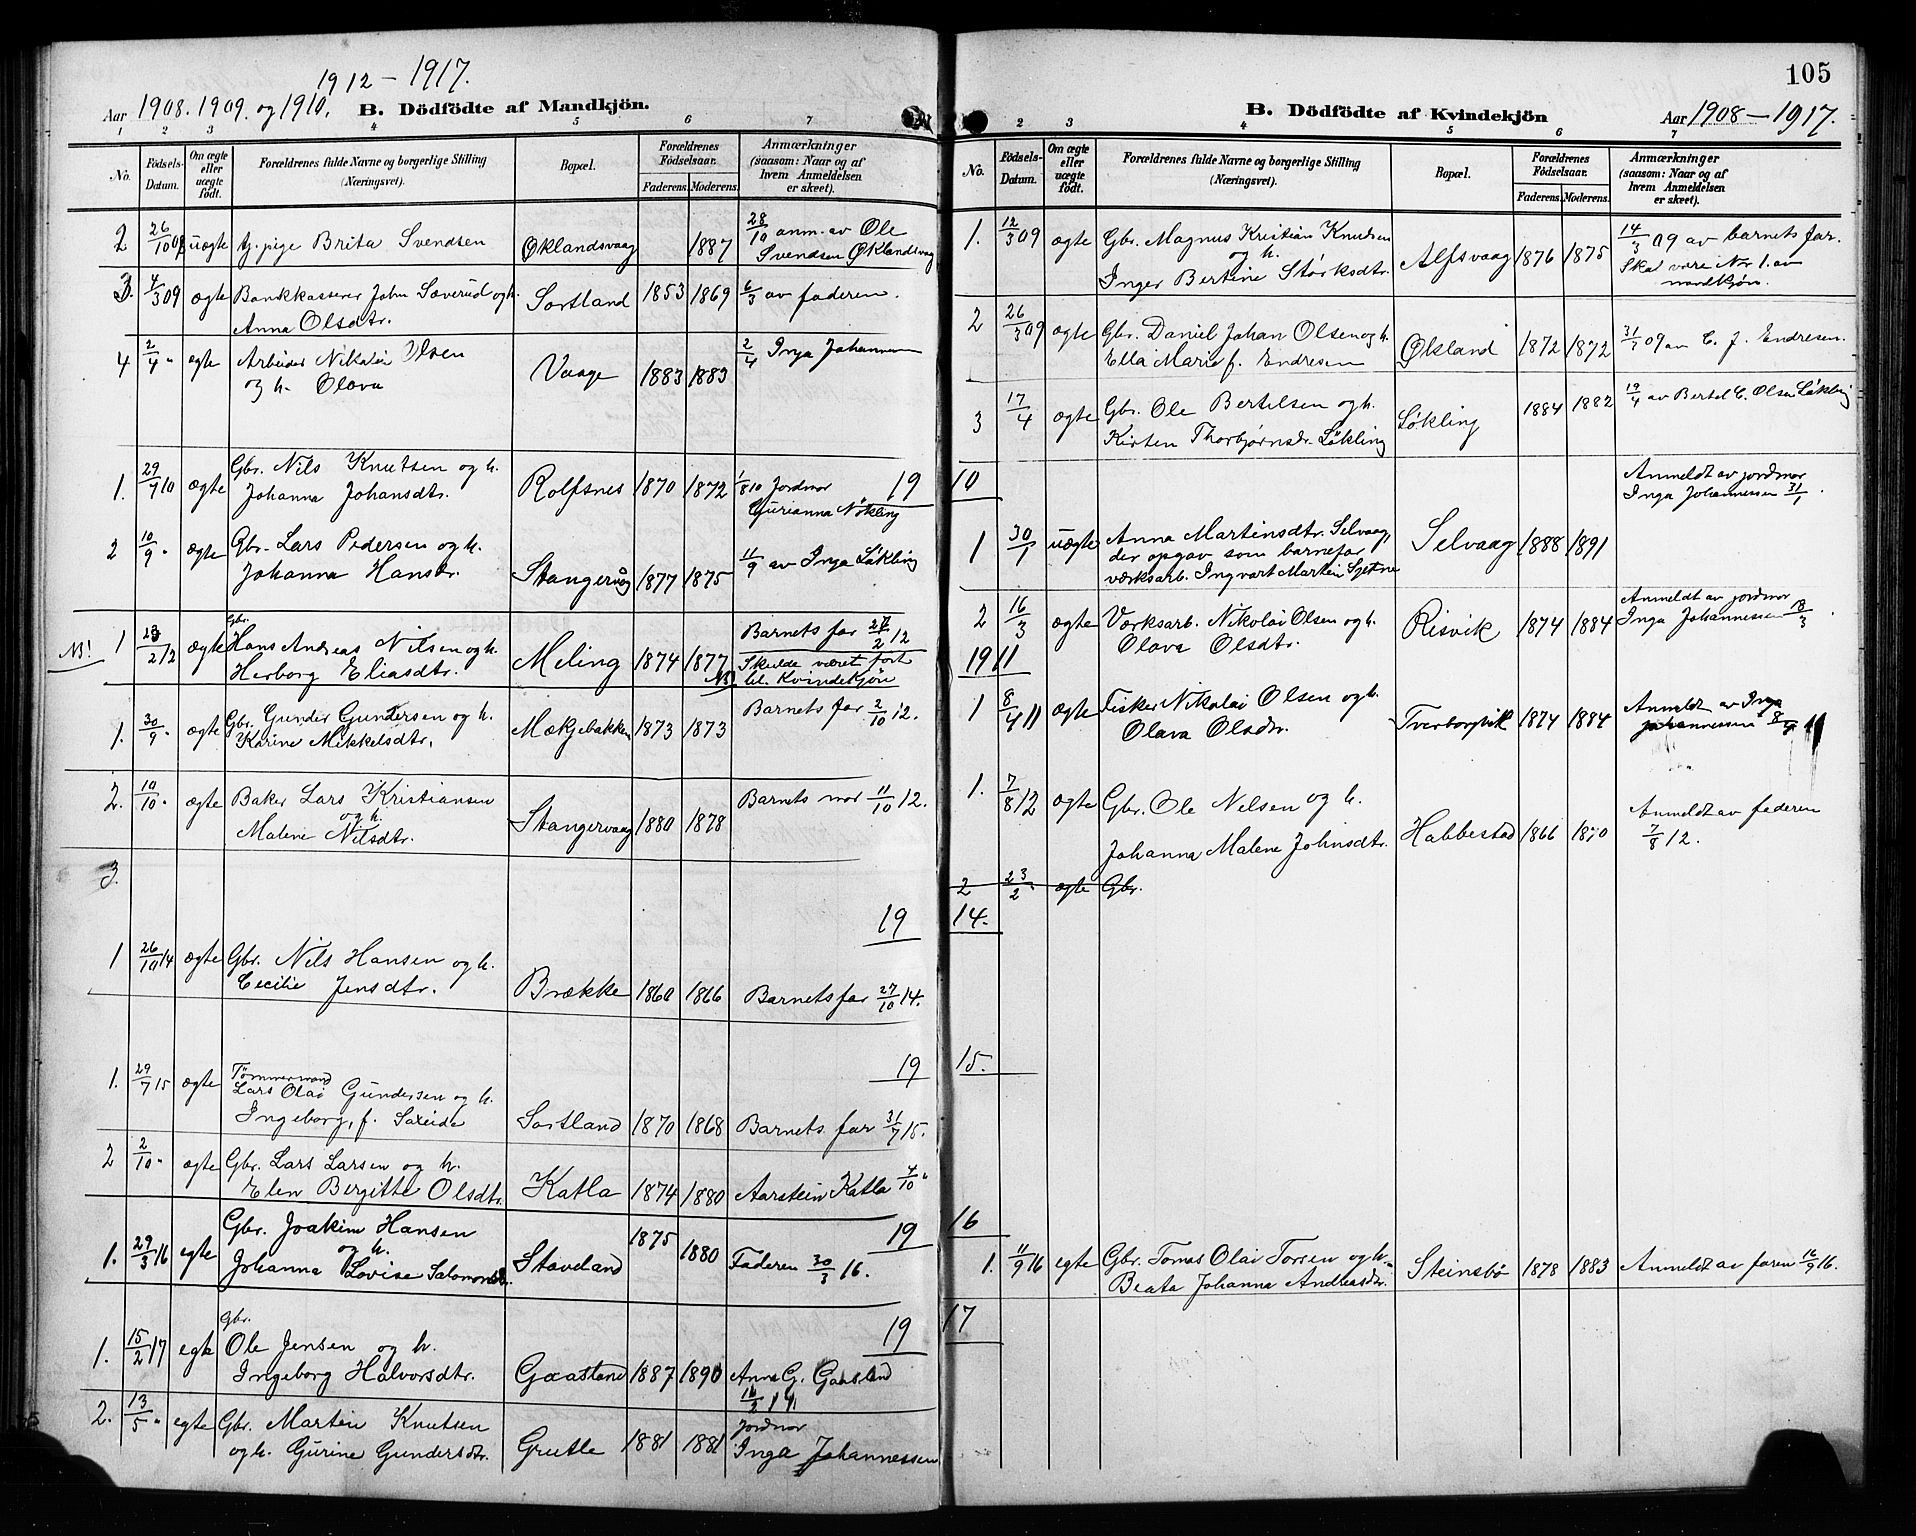 1912 - 1917.
Aar 1908. 1909. og 1910. B. Dödfödte af Mandkjön.
1 2 3 4 5 6 7
No. Födsels-Datum. Om ægte eller uægte födt. Forældrenes fulde Navne og borgerlige Stilling (Næringsvei). Bopæl. Forældrenes Födselsaar. Faderens. Moderens. Anmærkninger (saasom: Naar og af hvem Anmeldelsen er skeet).
2 26/10 08 uægte pige Brita Svendsen Øklandsvaag 1887 28/10 anm. av Ole
Svendsen Øklandsvaag
3. 4/3 09 ægte Bankkasserer John Sæverud og h.
Anna Olsdtr. Sortland 1853 1869 6/3 av faderen.
4 2/4 " ægte Arbeider Nikolai Olsen
og h. Olava Vaage 1883 1883 2/4 Inga Johannessen
1. 29/7 10 ægte Gbr. Nils Knutsen og h.
Johanna Johansdtr. Rolfsnes 1870 1872 1/8 10 Jordmor
Gurianna Nökling
19
2 10/9 " ægte Gbr. Lars Pedersen og h.
Johanna Hansdr. Stangervåg 1877 1875 11/9 av Inga Løkling
NB! 1 23/2 12 ægte Gbr.
Hans Andreas Nilsen og h.
Herborg Eliasdtr. Meling 1874 1877 Barnets far 27/2 12
NB Skulde været ført
til Kvindekjøn
1. 30/9 " ægte Gbr. Gunder Gundersen og h.
Karine Mikkelsdtr. Mækjebakken 1873 1873 Barnets far 2/10 12.
2. 10/10 " ægte Baker Lars Kristiansen
og h.
Malene Nilsdtr. Stangervaag 1880 1878 Barnets mor 11/10 12.
3.
19
1 26/10 14 ægte Gbr. Nils Hansen og h.
Cecilie Jensdtr. Brække 1860 1866 Barnets far 27/10 14.
19
1. 29/7 15 ægte Tømmermand
Lars Olai Gundersen og h.
Ingeborg, f. Saxeide Sortland 1870 1868 Barnets far 31/7 15.
2 2/10 " ægte Gbr. Lars Larsen og h.
Elen Bergitte Olsdtr. Katla 1874 1880 Aarstein Katla 4/10 "
19
1. 29/3 16 egte Gbr. Joakim Hansen
og h.
Johanna Lovise Salomonsdr. Staveland 1875 1880 Faderen 30/3 16.
19
1. 15/2 17 egte Gbr.
Ole Jensen og h.
Ingeborg Halvorsdtr. Gaasland 1887 1890 Anna G. Gaasland
2. 13/5 " egte Gbr. Martin Knutsen
og h. Gurine Gundersdtr. Grutle 1881 1881 Jordmor
Inga Johannessen
105
B. Dödfödte af Kvindekjön Aar 1908 - 1917.
2 3 4 5 6 7
No. Födsels-Datum. Om ægte eller uægte födt. Forældrenes fulde Navne og borgerlige Stilling (Næringsvei). Bopæl. Forældrenes Födselsaar. Faderens. Moderens. Anmærkninger (saasom: Naar og af hvem Anmeldelsen er skeet).
1. 12/3 09 ægte Gbr. Magnus Kristian Knudsen
og h.
Inger Bertine Størksdtr. Alfsvaag 1876 1875 14/3 09 av barnets far.
Skal være No 1. av
mandkjøn.
2 26/3 09 ægte Gbr. Daniel Johan Olsen og h.
Ella Marie f. Endresen Økland 1872 1872 09 av C. J. Endresen.
3 17/4 ægte Gbr. Ole Bertelsen og h.
Kirsten Thorbjørnsdr. Løkling Løkling 1884 1882 19/4 av Bertel C. Olsen Løkling
10
1 30/1 uægte Anna Martinsdtr. Selvaag,
der opgav som barnefar
værksarb. Ingvart Martin Sætne Selvaag 1888 1891 Anmeldt av jordmor
Inga Johannessen 31/1.
2 16/3 ægte Værksarb. Nikolai Olsen og h.
Olava Olsdtr. Risvik 1874 1884 Anmeldt av jordmor
Inga Johannessen 18/3.
1911
1 8/4 11 ægte Fisker Nikolai Olsen og h.
Olava Olsdtr. Tverborgvik 1874 1884 Anmeldt av Inga
Johannessen 8/4 11
1. 7/8 12 ægte Gbr. Ole Nilsen og h.
Johanna Malene Johnsdtr. Habbestad 1866 1870 Anmeldt av faderen
7/8 12.
2 23/2 " ægte Gbr.
14.
15.
16
1. 11/9 16 egte Gbr. Tomas Olai Torsen og h.
Beata Johanna Andreasdr. Steinsbø 1878 1883 Anmeldt av faren 16/9 16.
17